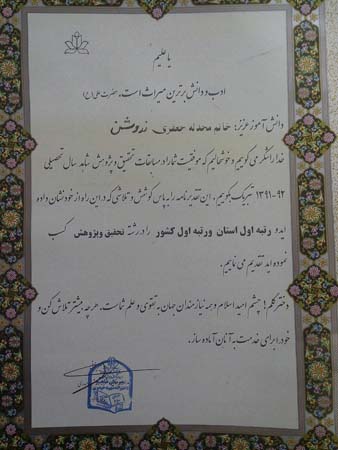 یا علیم
ادب و دانش برترین میراث است. حضرت علی (ع)
دانش آموز عزیز: خانم محدثه جعفری
خدا را شکر می گوییم و خوشحالیم که موفقیت شما را در مسابقات تحقیق و پژوهش شاهد سال تحصیلی
۱۳۹۱-۹۲ تبریک بگوییم. این تقدیرنامه را به پاس کوشش و تلاشی که در این راه از خود نشان داده
اید و رتبه اول استان و رتبه اول کشور را در رشته تحقیق و پژوهش کسب
نموده اید تقدیم می نماییم.
دخترگلم! چشم امید اسلام و همه نیازمندان جهان به تقوی و علم شماست. هر چه بیشتر تلاش کن و
خود را برای خدمت به آنان آماده ساز.